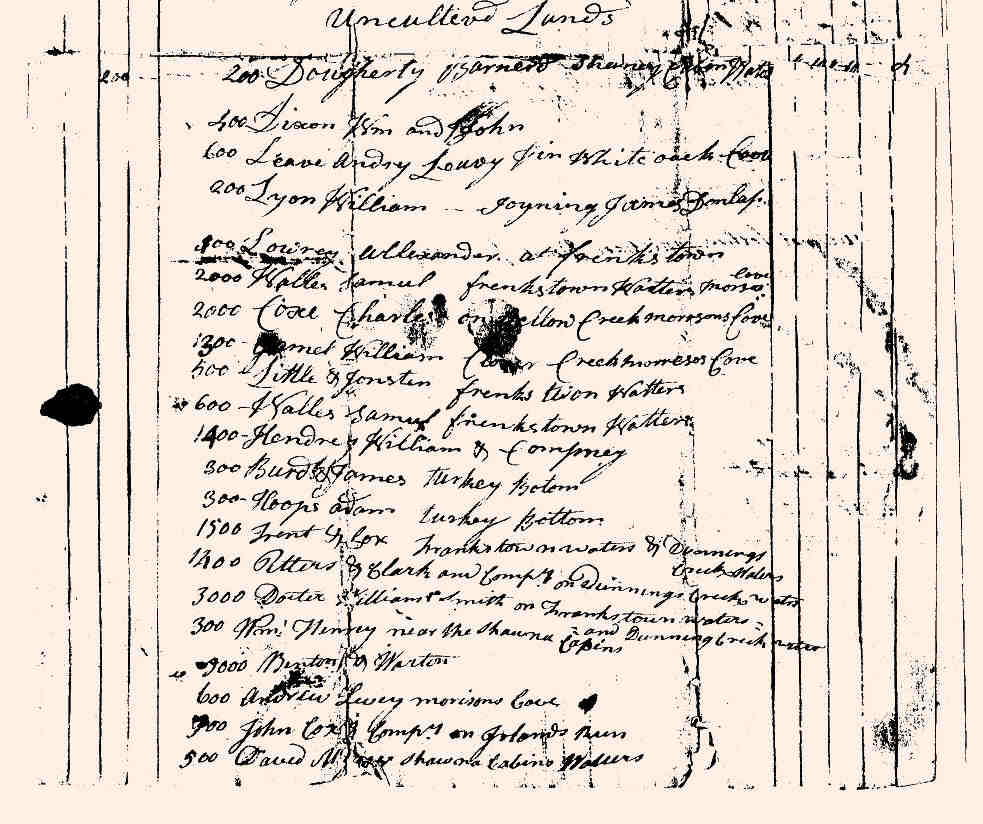 Uncultevd Lands
200 200 Dougherty Barnerd Shaney
400 Dixon Wm and John
600 Leave Andry Leavy in White oack Cove
200 Lyon William Joyning James Dunlap
400 Lowrey Allexander at frenkstown
2000 Walles Samuel frenkstown Watters morsos Cove
2000 Coxe Charles on Creek morrisons Cove
1300 William Clover Creek Cove
500 Little & Jonsten frenks town Watters
600 Walles Samuel frenkstown Watters
1400 Hendre William & Compney
300 Burd & James turkey Botom
300 Hoops adam turkey Bottom
1500 Trent & Cox frankstown waters & Dunnings Creek Waters
1200 Petters & Clark and Compy on Dunnings Creek waters
3000 Docter Williams Smith on frankstown waters and Dunning Creek waters
300 Wm Henrey near the Shawna Cabins
9000 Benton & Warton
600 Andrew Lewey morisons Cove
900 John Cox & Compy on Irlands Run
500 David Shawna Cabins Watters